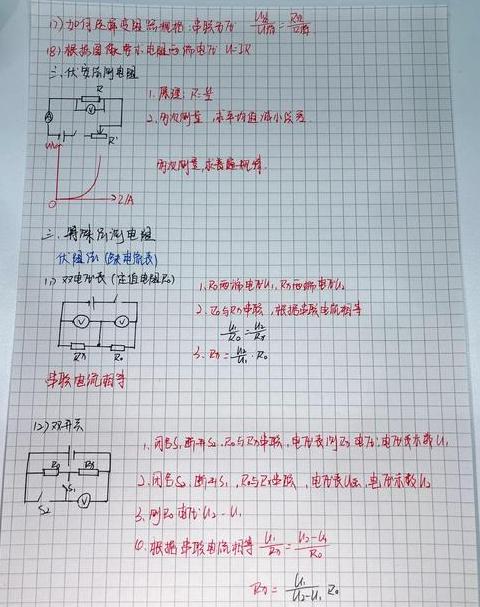 (7) 如何选择变阻器规格: 串联分压 U定/U滑 = R定/R滑
(8) 根据图像求小电阻两端电压 U=IR
二、伏安法测电阻
R
V
A
R'
1. 原理: R=U/I
2. 多次测量, 求平均值减小误差
U/V
多次测量, 求普遍规律.
0
I/A
三、特殊法测电阻
伏阻法 (缺电流表)
(1) 双电压表 (定值电阻R₀)
V V
Rx R₀
串联电流相等
1. R₀两端电压U₁, Rx两端电压U₂
2. R₀与Rx串联, 根据串联电流相等
U₁/R₀ = U₂/Rx
3. Rx = U₂/U₁ · R₀
(2) 双开关
R₀ Rx
S₁
S₂ V
1. 闭合S₁, 断开S₂, R₀与Rx串联, 电压表测Rx电压, 电压表示数U₁
2. 闭合S₂, 断开S₁, R₀与Rx串联, 电压表U源, 电压示数U₂
3. 则R₀电压U₂-U₁
4. 根据串联电流相等 U₁/Rx = U₂-U₁/R₀
Rx = U₁/U₂-U₁ R₀